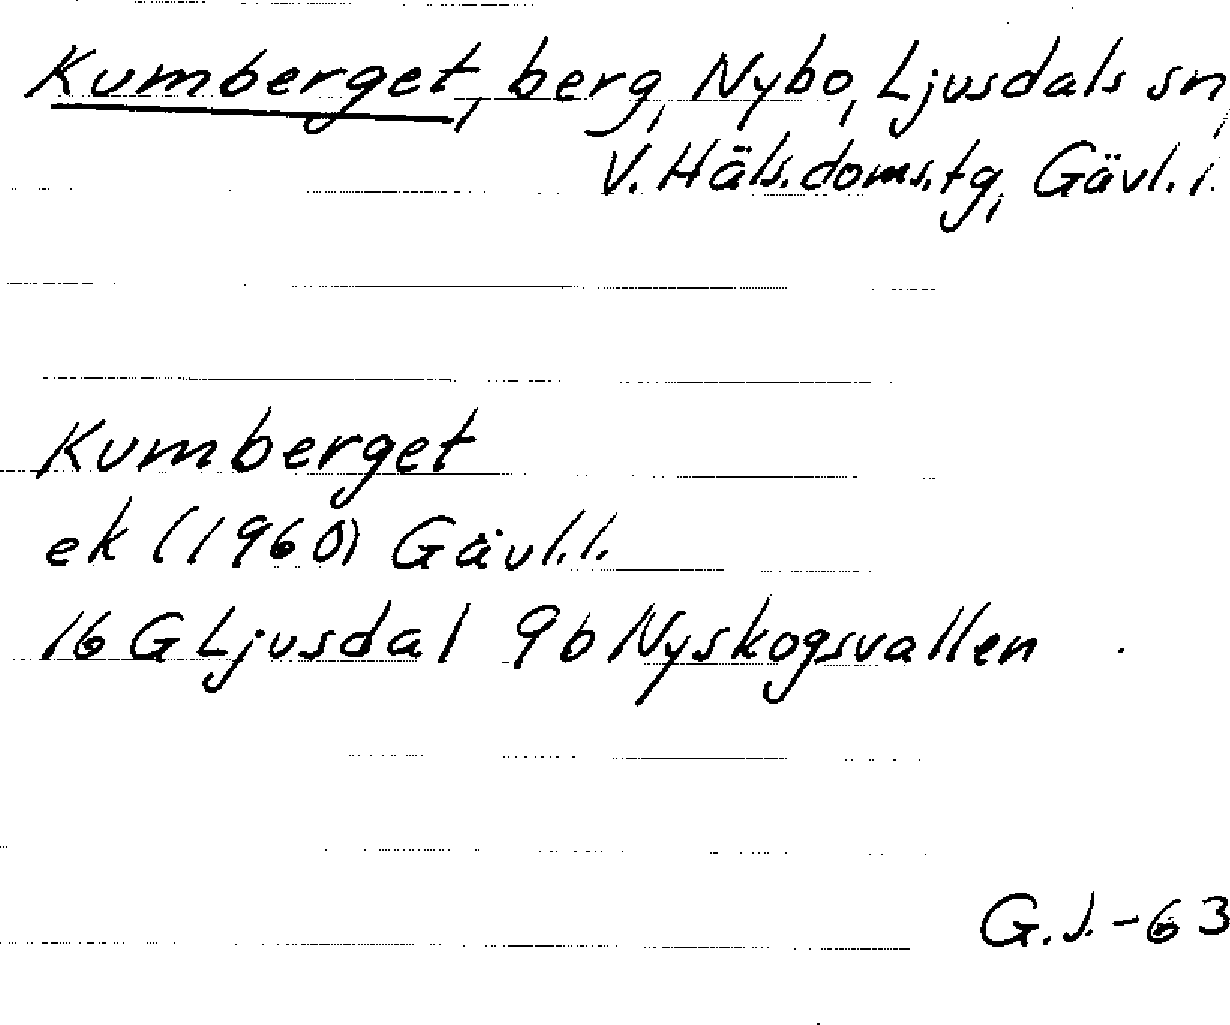 Kumberget, berg, Nybo, Ljusdals sn,
V. Häls. doms.tg, Gävl. l.
Kumberget
ek (1960) Gävl. l.
16 G Ljusdal 9b Nyskogsvallen
G.J.-63